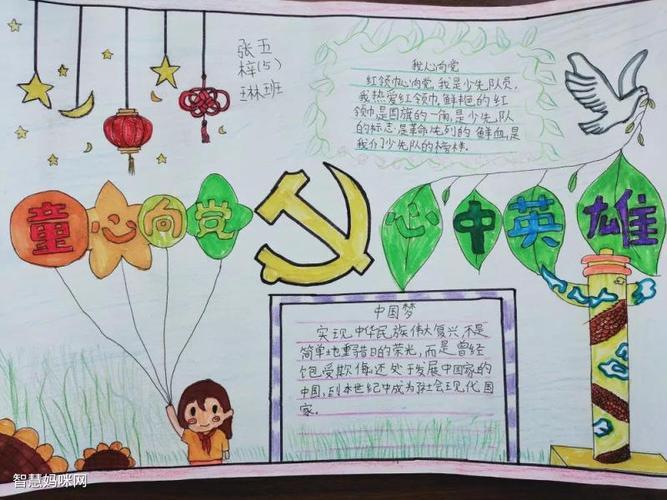 张 五
梓(5)
琳班
我心向党
红领巾心向党,我是少先队员,
我热爱红领巾,鲜艳的红
领巾是国旗的一角,是少先队
的标志,是革命先烈的鲜血,是
我们少先队的榜样.
童心向党
心中英雄
中国梦
实现中华民族伟大复兴,不是
简单地重踏昔日的荣光,而是曾经
饱受欺侮,还处于发展中国家的
中国,到本世纪中成为社会现代国
家.
智慧妈咪网